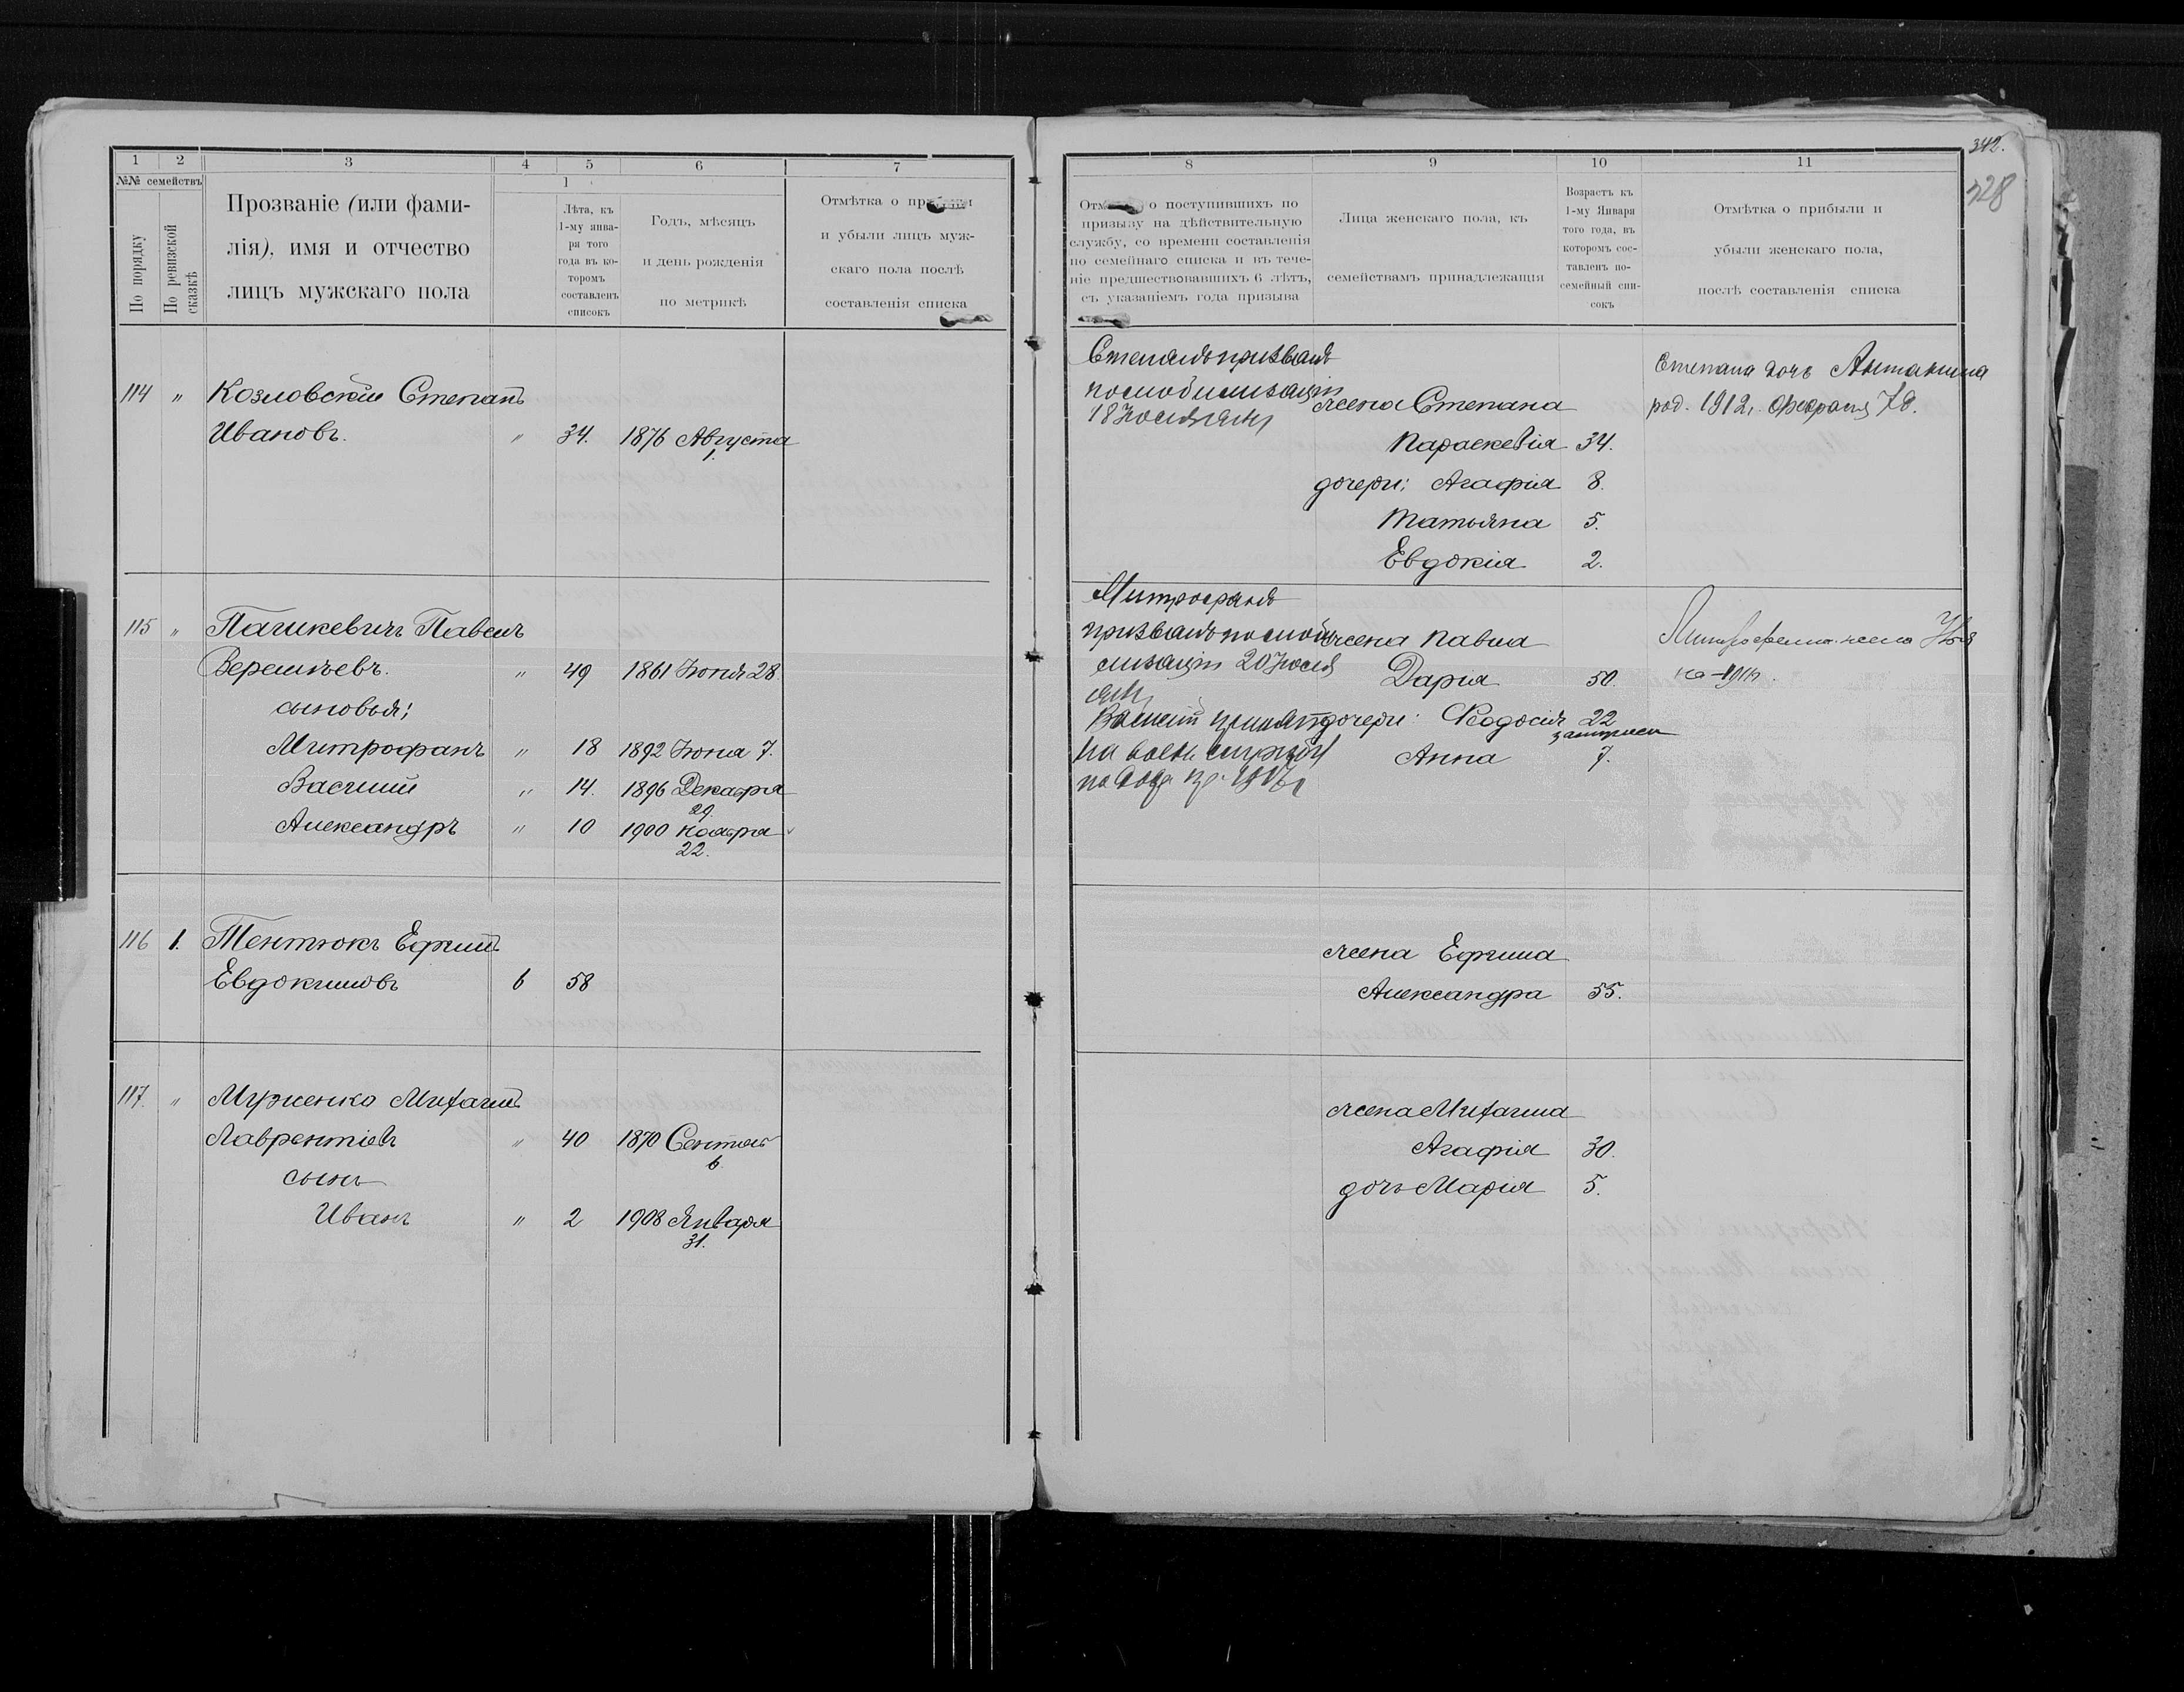 1 2 3 4 5 6 7
№№ семействъ
По порядку
По ревизской сказкѣ
Прозваніе (или фами-
лія), имя и отчество
лицъ мужскаго пола
1
Лѣта, къ
1-му янва-
ря того
года въ ко-
торомъ
составленъ
списокъ
Годъ, мѣсяцъ
и день рожденія
по метрикѣ
Отмѣтка о
и убыли лицъ муж-
скаго пола послѣ
составленія списка
114 " Козловскій Степанъ
Ивановъ. " 34. 1876 Августа
1.
115 " Пашкевичъ Павелъ
Веремѣевъ. " 49 1861 Іюня 28
сыновья;
Митрофанъ " 18 1892 Іюня 7.
Василій " 14. 1896 Декабря
29.
Александръ " 10 1900 Ноября
22.
116 1. Тентюкъ Ефимъ
Евдокимовъ 6 58
117. " Мурženко Михаилъ
Лаврентіевъ " 40 1870 Сентяб
6.
сынъ
Иванъ " 2 1908 Января
31.
342.
328
8 9 10 11
о поступившихъ по
призыву на дѣйствительную
службу, со времени составленія
по семейнаго списка и въ тече-
ніе предшествовавшихъ 6 лѣтъ,
съ указаніемъ года призыва
Лица женскаго пола, къ
семействамъ принадлежащія
Возрастъ къ
1-му Января
того года, въ
которомъ сос-
тавленъ по-
семейный спи-
сокъ
Отмѣтка о прибыли и
убыли женскаго пола,
послѣ составленія списка
Степанъ призванъ
по мобилизаціи
18 Іюля
жена Степана
Параскевія 34.
дочери; Агафія 8.
Татьяна 5.
Евдокія 2.
Степана дочь Антанина
род. 1912 г. Февраля
Митрофанъ
призванъ по моби
лизаціи 20 Іюля
Василій принятъ
на воен. службу
жена Павла
Дарія 50.
дочери: Ѳеодосія 22
замужем
Анна 7.
Митрофана жена
жена Ефима
Александра 55.
жена Михаила
Агафія 30.
дочь Марія 5.